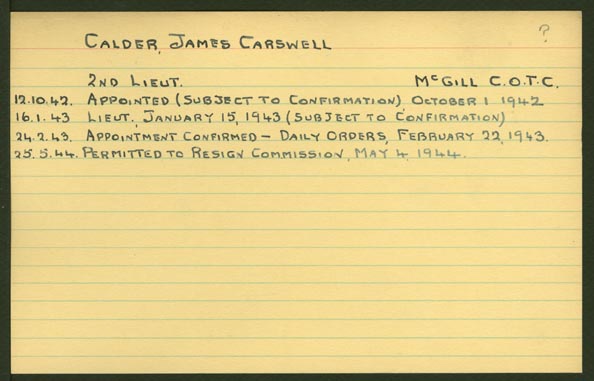 ?
CALDER, JAMES CARSWELL
2ND LIEUT. McGILL C.O.T.C.
12.10.42. APPOINTED (SUBJECT TO CONFIRMATION), OCTOBER 1 1942
16.1.43 LIEUT., JANUARY 15, 1943 (SUBJECT TO CONFIRMATION)
24.2.43. APPOINTMENT CONFIRMED – DAILY ORDERS, FEBRUARY 22, 1943.
25.5.44. PERMITTED TO RESIGN COMMISSION, MAY 4, 1944.